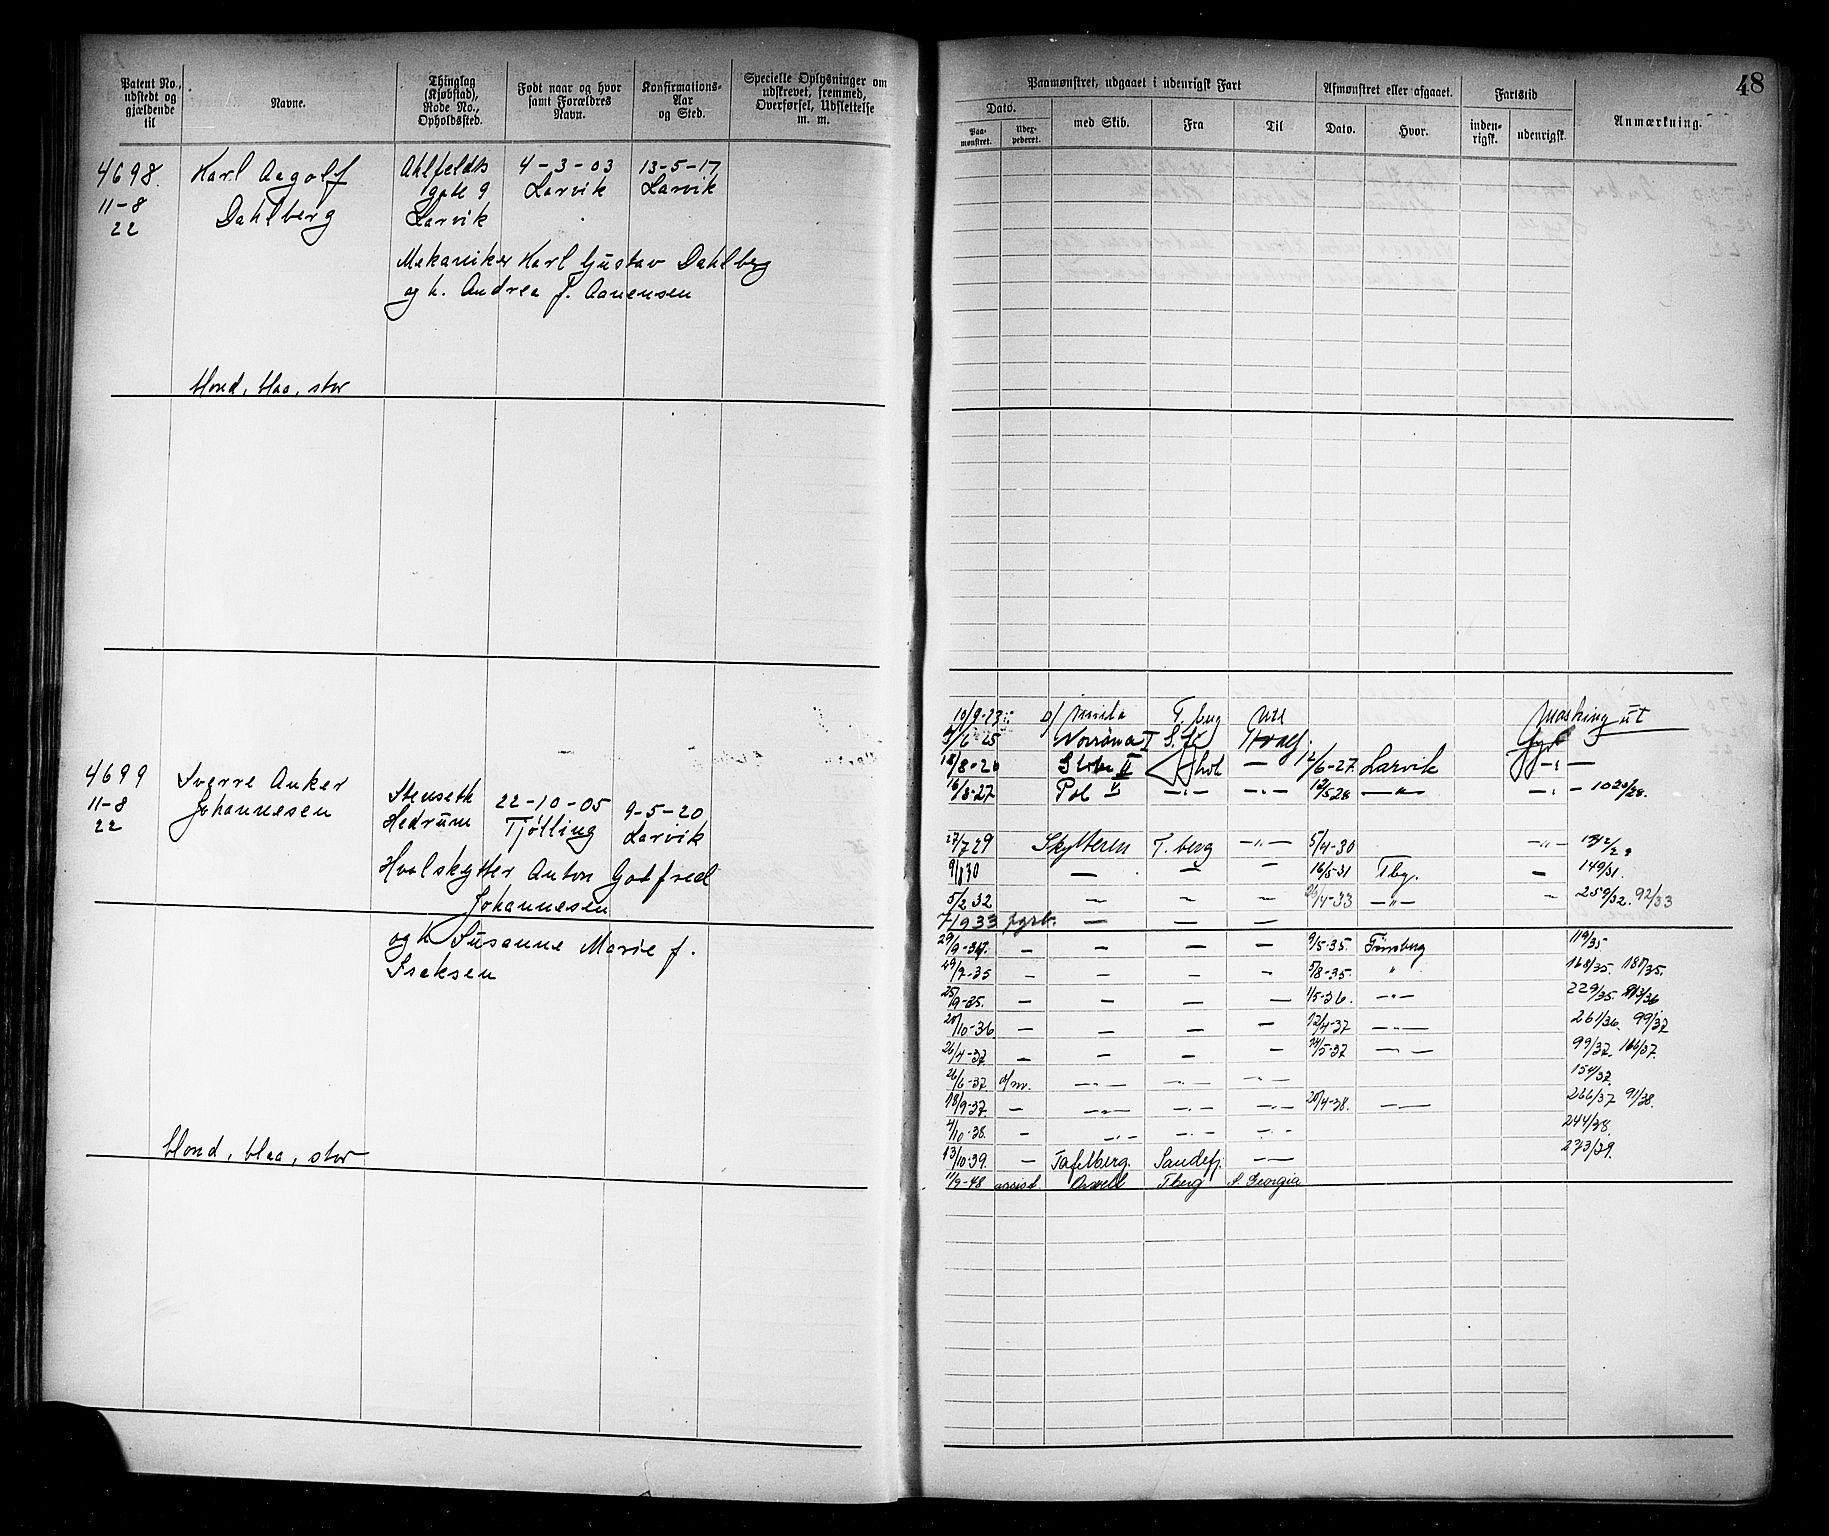 48
Patent No., udstedt og gjældende til
Navne.
Thinglag (Kjøbstad), Rode No., Opholdssted.
Født naar og hvor samt Forældres Navn.
Konfirmations-Aar og Sted.
Specielle Oplysninger om udskrevet, fremmed, Overførsel, Udslettelse m. m.
Paamønstret, udgaaet i udenrigsk Fart
Afmønstret eller afgaaet.
Fartstid
Anmærkning.
Dato.
med Skib.
Fra
Til
Dato.
Hvor.
inden-rigsk.
udenrigsk.
Paa-mønstret.
4698. Karl Aagolf Ahlfeldts 4-3-03 13-5-17
11-8 gate 9 Larvik Larvik
22 Dahlberg Larvik
Mekaniker Karl Gustav Dahlberg
og h. Andrea f. Aanensen
blond, blaa, stor
4699 Sverre Anker Stenseth 22-10-05 9-5-20
11-8 Johannesen Hedrum Tjølling Larvik
22
Hvalskytter Anton Gotfred
Johannesen
og h Susanne Marie f.
Isaksen
blond, blaa, stor
10/9-23 T. berg
/6-25 Norrøna I S.fj
/8-26 II — 12/6-27. Larvik -"-
16/8-27 Pol V -"- -"- 12/5 28 -"- -"- 1020/28.
27/7 29 Skytteren T. berg -"- 5/4-30 -"-
9/ 30 — — — 16/5-31 Tbg. — 149/31.
5/2 32 — — — /4-33 -"- — 259/32. 92/33
7/9 33 fyrb. — —
29/9-34. — — — — 9/5-35. Tønsberg 119/35
/7-35 — — — — 5/8-35. " 168/35. 187/35.
25/9-35. — — — — 1/5-36. -"- 229/35. /36
20/10-36 — — — — 12/4-37 -"- 261/36. 99/37
26/4-37 — — — — 24/5-37 -"- 99/37. 166/37.
26/6-37. -"- -"- -"- 154/37.
18/9-37. — -"- -"- -"- 20/4-38. -"- 266/37 91/38.
4/10-38. — -"- -"- -"- 244/38.
13/10-39. — Tafelberg. Sandefj. — 273/39.
11/9-48 assist. Orwell Tberg S. Georgia